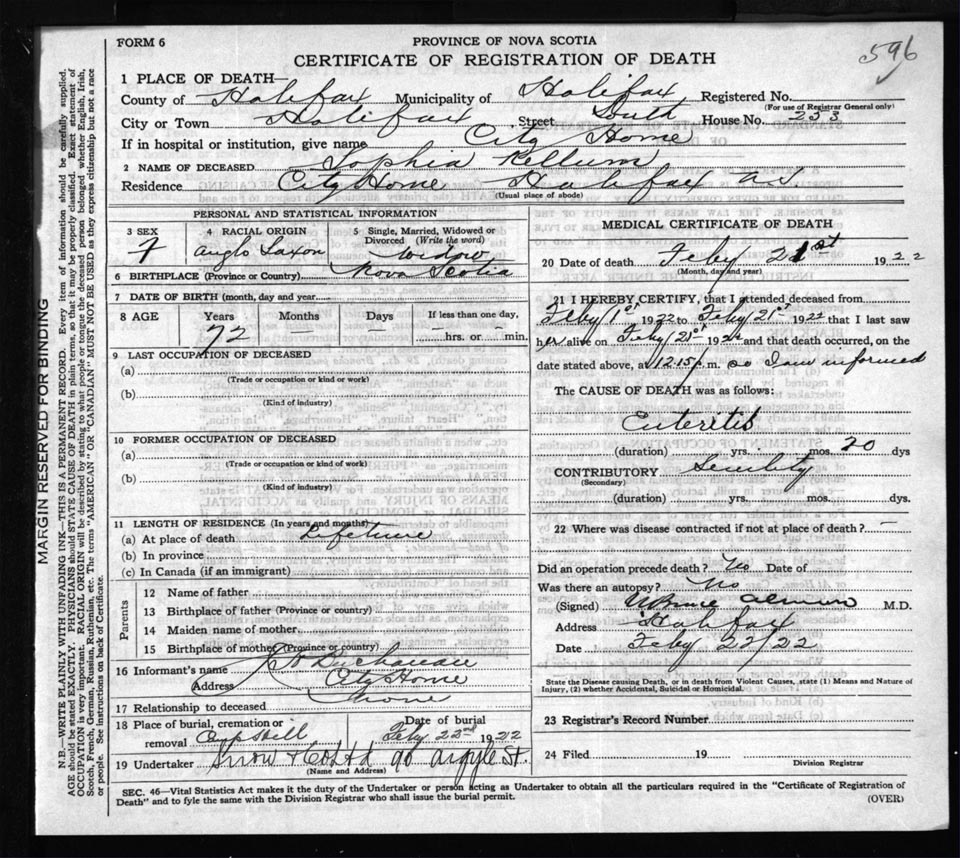 FORM 6
PROVINCE OF NOVA SCOTIA
596
CERTIFICATE OF REGISTRATION OF DEATH
1 PLACE OF DEATH—
County of Halifax Municipality of Halifax Registered No.
(For use of Registrar General only)
City or Town Halifax Street South House No. 253
If in hospital or institution, give name City Home
2 NAME OF DECEASED Sophia Kellum
Residence City Home Halifax n.s.
(Usual place of abode)
PERSONAL AND STATISTICAL INFORMATION
3 SEX 4 RACIAL ORIGIN 5 Single, Married, Widowed or Divorced (Write the word)
F Anglo Saxon Widow
6 BIRTHPLACE (Province or Country) Nova Scotia
7 DATE OF BIRTH (month, day and year)
8 AGE Years Months Days If less than one day,
72 — — hrs. or min.
9 LAST OCCUPATION OF DECEASED
(a)
(Trade or occupation or kind or work)
(b)
(Kind of industry)
10 FORMER OCCUPATION OF DECEASED
(a)
(Trade or occupation or kind of work)
(b)
(Kind of industry)
11 LENGTH OF RESIDENCE (In years and months)
(a) At place of death Lifetime
(b) In province
(c) In Canada (if an immigrant)
Parents
12 Name of father
13 Birthplace of father (Province or country)
14 Maiden name of mother
15 Birthplace of mother (Province or country)
16 Informant's name Buchanan
Address City Home
17 Relationship to deceased none
18 Place of burial, cremation or removal Camp Hill
Date of burial Feby 22nd 1922
19 Undertaker Snow & Co Ltd 90 Argyle St.
(Name and Address)
MEDICAL CERTIFICATE OF DEATH
20 Date of death Feby 21st 1922
(Month, day and year)
21 I HEREBY CERTIFY, that I attended deceased from
Feby 1st 1922 to Feby 21st 1922 that I last saw
her alive on Feby 21st 1922 and that death occurred, on the
date stated above, at 12.15 p.m. so I am informed
The CAUSE OF DEATH was as follows:
Enteritis
(duration) yrs. mos. 20 dys
CONTRIBUTORY Senility
(Secondary)
(duration) yrs. mos. dys.
22 Where was disease contracted if not at place of death? —
Did an operation precede death? No Date of
Was there an autopsy? No
(Signed) W Bruce Almon M.D.
Address Halifax
Date Feby 22/22
State the Disease causing Death, or in death from Violent Causes, state (1) Means and Nature of
Injury, (2) whether Accidental, Suicidal or Homicidal.
23 Registrar's Record Number
24 Filed 19
Division Registrar
SEC. 46—Vital Statistics Act makes it the duty of the Undertaker or person acting as Undertaker to obtain all the particulars required in the "Certificate of Registration of
Death" and to fyle the same with the Division Registrar who shall issue the burial permit.
(OVER)
MARGIN RESERVED FOR BINDING
N.B.—WRITE PLAINLY WITH UNFADING INK—THIS IS A PERMANENT RECORD. Every item of information should be carefully supplied.
AGE should be stated EXACTLY. PHYSICIANS should STATE CAUSE OF DEATH in plain terms, so that it may be properly classified. Exact statement of
OCCUPATION is very important. RACIAL ORIGIN will be described by stating to what people or tongue the deceased person belonged whether English, Irish,
Scotch, French, German, Russian, Ruthenian, etc. The terms "AMERICAN" OR "CANADIAN" MUST NOT BE USED as they express citizenship but not a race
or people. See instructions on back of Certificate.